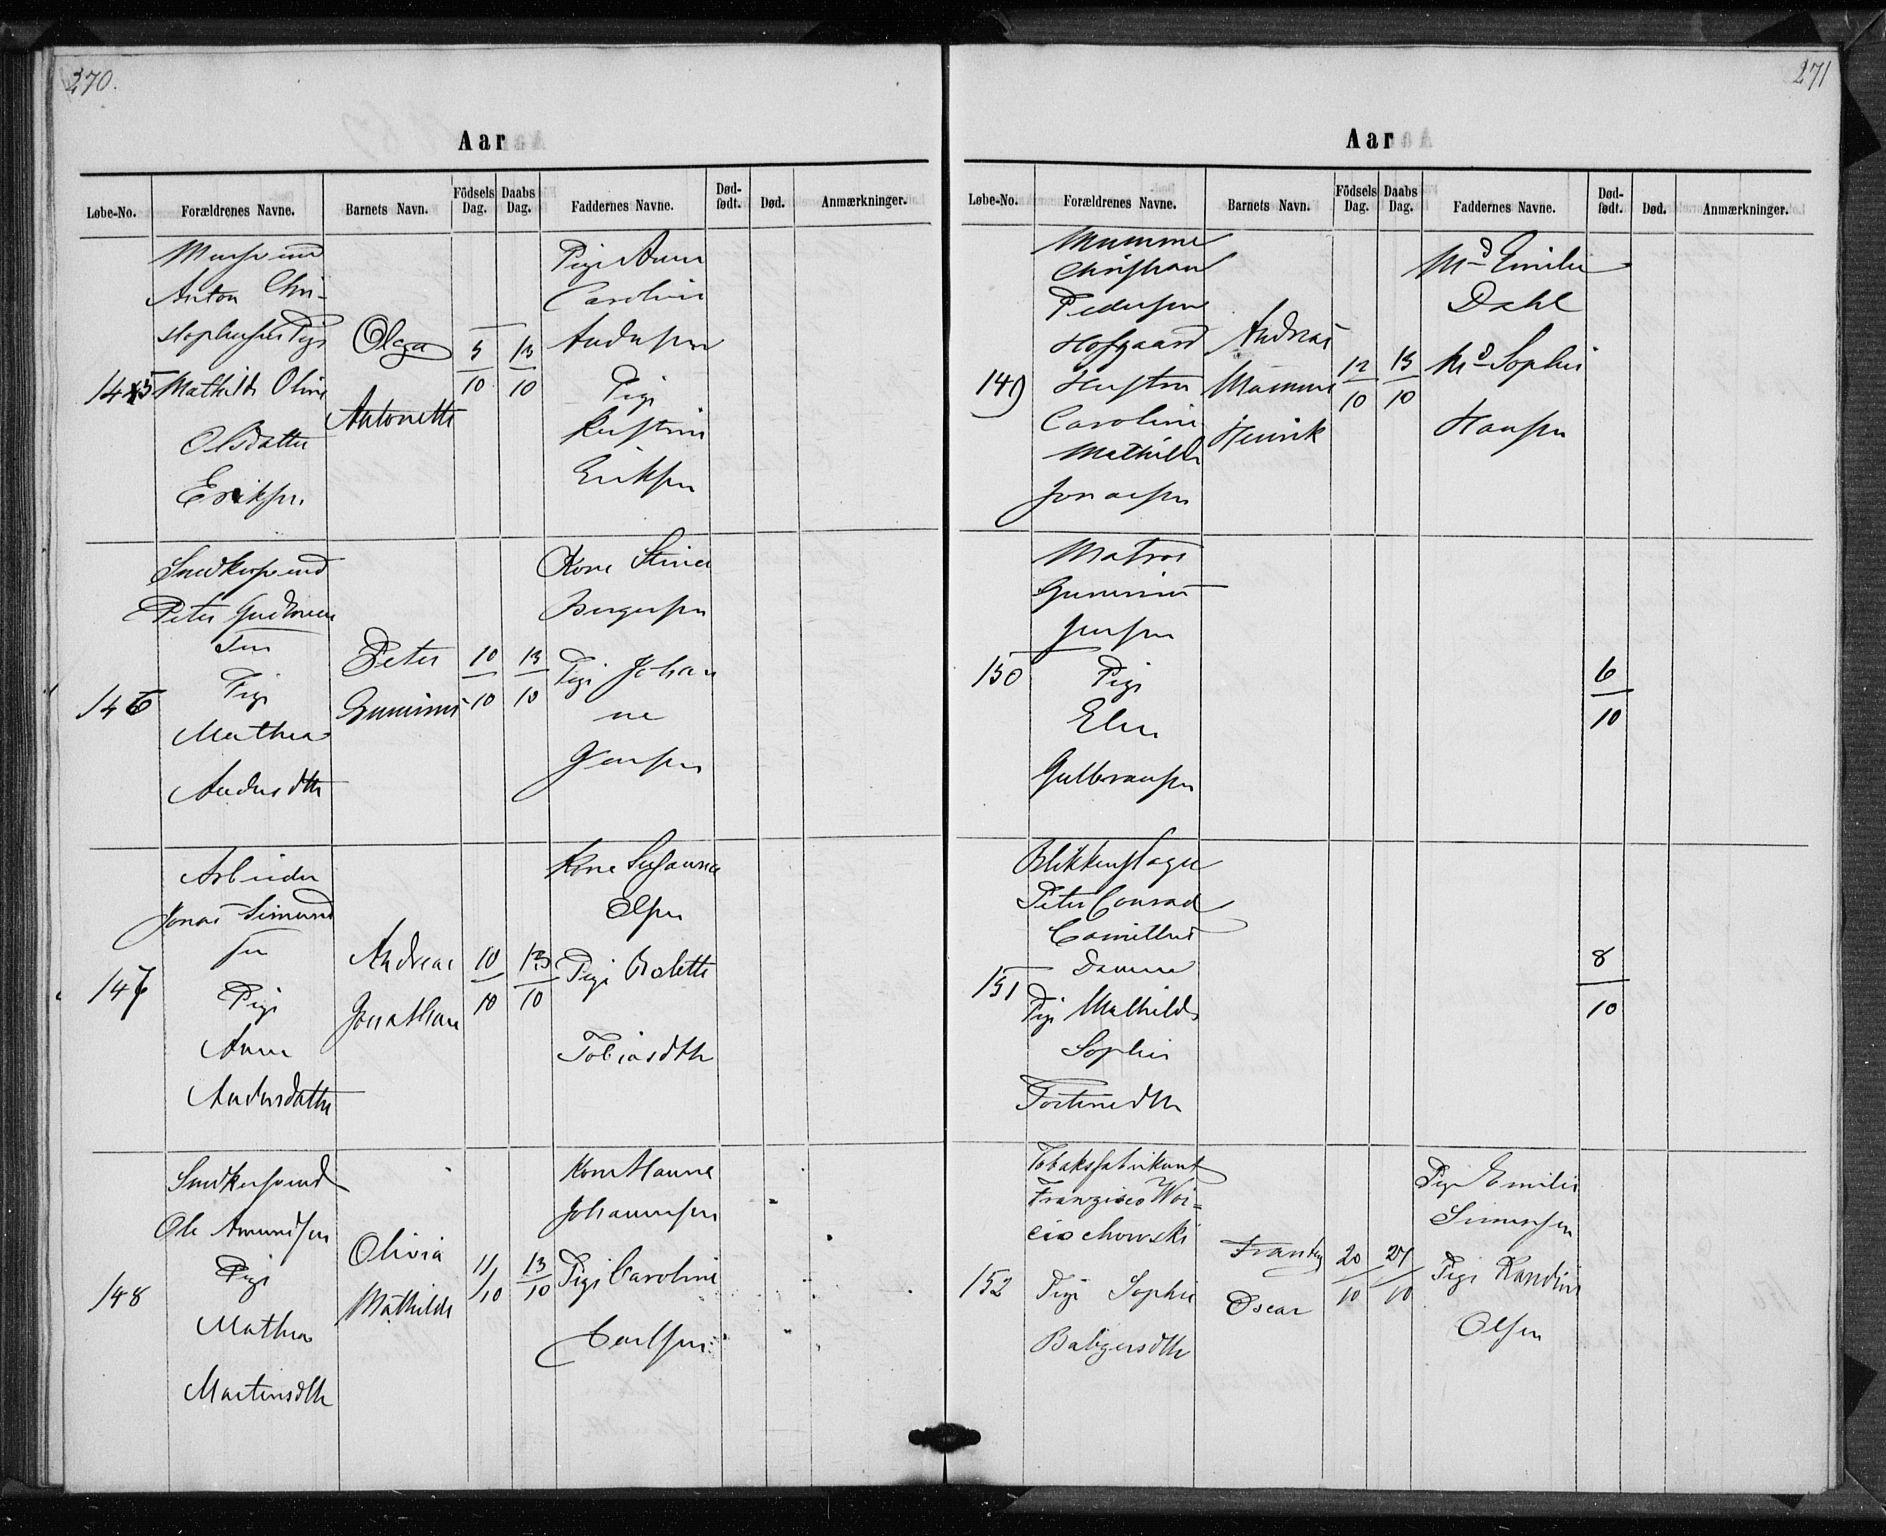 270.
Aar
Løbe-No. Forældrenes Navne. Barnets Navn. Födsels Dag. Daabs Dag. Faddernes Navne. Død-født. Død. Anmærkninger.
145
Anton Chri-
stophersen Pige
Mathilde Oline
Olsdatter
Eriksen
Olga
Antonette
5/10
13/10
Pige Anna
Caroline
Andersen
Pige
Kristine
Eriksen
146
Snedkersvend
Peter
sen
Pige
Mathea
Andersdtr
Peter
Gunerius
10/10
13/10
Kone Stine
Bergersen
Pige Johan
ne
Jensen
147
Arbeider
Jonas Simund
sen
Pige
Anne
Andersdatter
Andreas
Jonathan
10/10
13/10
Kone Susanna
Olsen
Pige Bolette
Tobiasdtr
148
Snedkersvend
Ole Amundsen
Pige
Mathea
Martinsdtr
Olivia
Mathilde
11/10
13/10
Kone Hanna
Johannesen
Pige Caroline
Carlsen
271
Aar
Løbe-No. Forældrenes Navne. Barnets Navn. Födsels Dag. Daabs Dag. Faddernes Navne. Død-født. Død. Anmærkninger.
149
Mumme
Christian
Pedersen
Hofgaard
Hustru
Caroline
Mathilde
Jonasen
Andreas
Mumme
Henrik
12/10
13/10
Md Emilie
Dahl
Md Sophie
Hansen
150
Matros
Gunerius
Jensen
Pige
Elen
Gulbransen
6/10
151
Blikkenslager
Peter Conrad
Camillus
Damme
Pige Mathilde
Sophie
Tostensdtr
8/10
152
Tobaksfabrikant
Franzisco Woi=
ciechowski
Pige Sophie
Oscar
20/10
27/10
Pige Emilie
Simensen
Pige Randine
Olsen